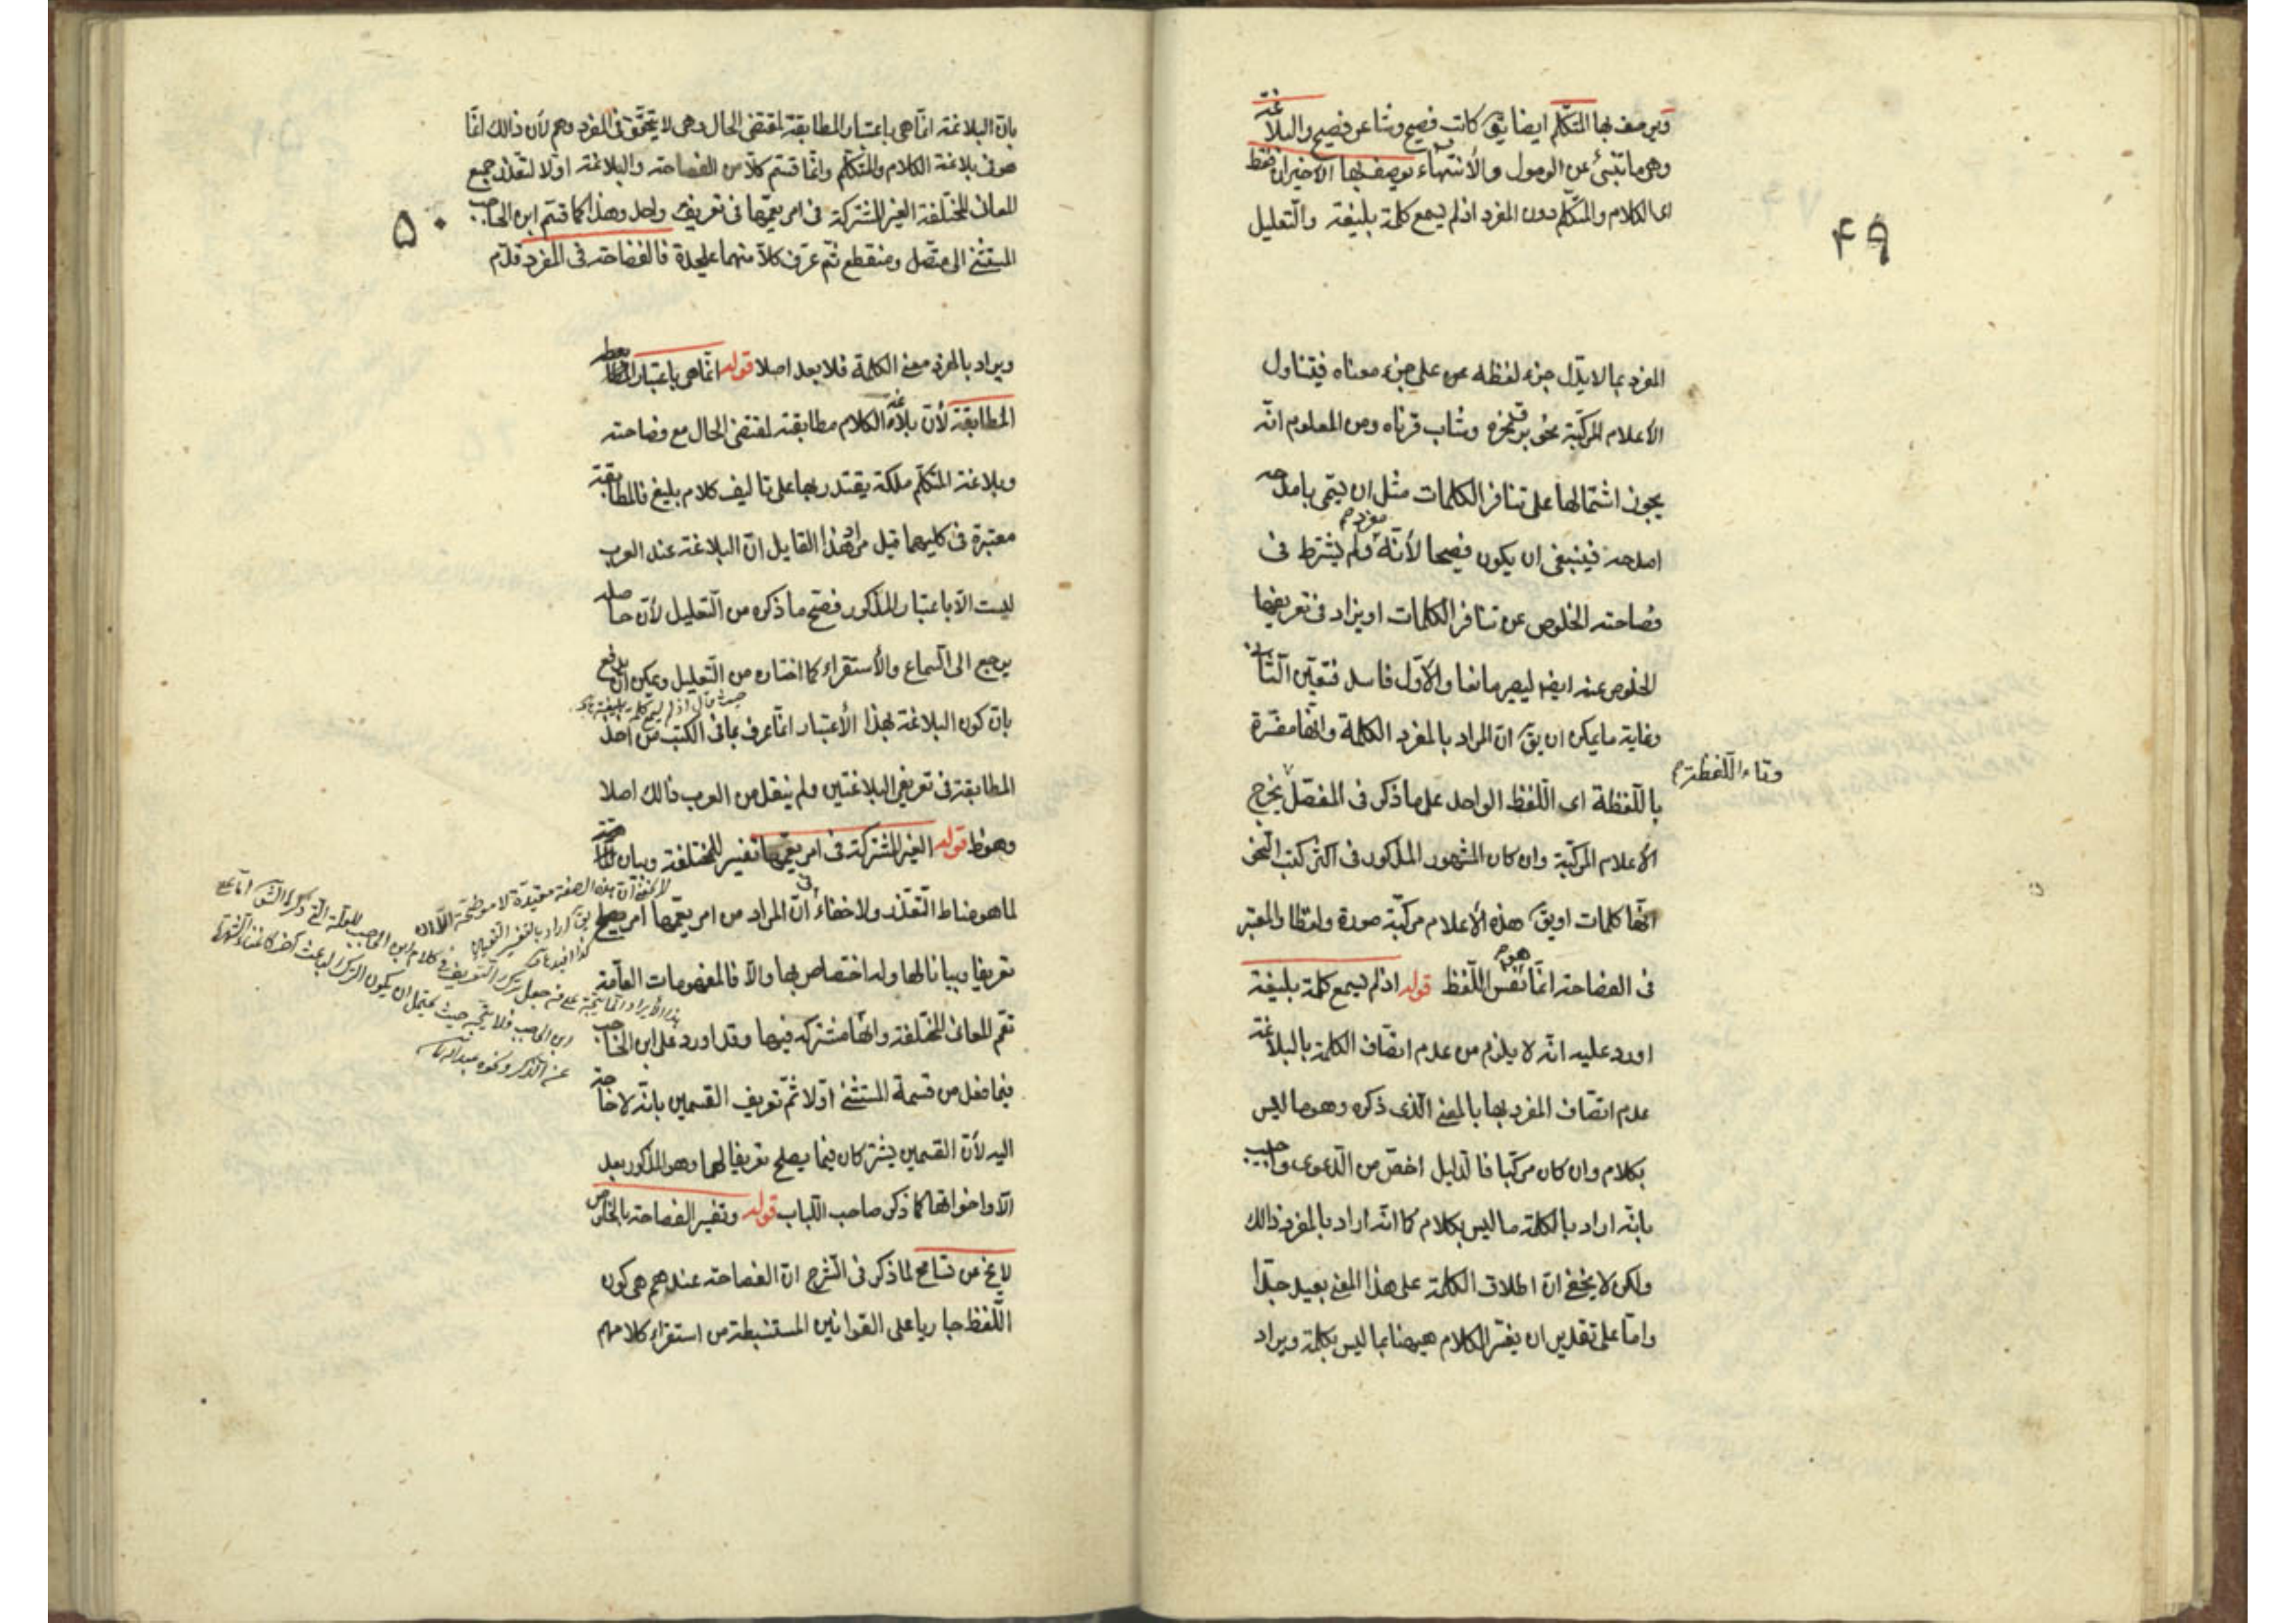 ويوصف بها المتكلم ايضا يق كاتب فصيح وشاعر فصيح والبلاغة
وهى ما تنبئ عن الوصول والأنتهاء يوصف بها الاخيران فقط
اى الكلام والمتكلم دون المفرد اذ لم يسمع كلمة بليغة والتعليل
۴۹
المفرد بما لا يدل جزء لفظه على جزء معناه فيتناول
الاعلام المركبة نحو برق نحره وشاب قرناه ومن المعلوم انه
يجوز اشتمالها على تنافر الكلمات مثل ان يسمى بامدحه
امدحه فينبغى ان يكون فصيحا لأنه مفرد ولم يشترط فى
فصاحته الخلوص عن تنافر الكلمات او يزاد فى تعريفها
الخلوص عنه ايضا ليصير مانعا والاول فاسد فتعين الثانى
وغاية ما يمكن ان يق ان المراد بالمفرد الكلمة وانها مفسرة
باللفظة اى اللفظ الواحد على ما ذكر فى المفصل يخرج
وتاء اللفظة
الاعلام المركبة وان كان المشهور المذكور فى اكثر كتب النحو
انها كلمات او يق هذه الأعلام مركبة صورة ولفظا والمعتبر
فى الفصاحة انما هو نفس اللفظ قوله اذ لم يسمع كلمة بليغة
اورد عليه انه لا يلزم من عدم اتصاف الكلمة بالبلاغة
عدم اتصاف المفرد بها بالمعنى الذى ذكره وهو ما ليس
بكلام وان كان مركبا فالدليل اخص من الدعوى واجيب
بانه اراد بالكلمة ما ليس بكلام كما انه اراد بالمفرد ذالك
ولكن لا يخفى ان اطلاق الكلمة على هذا المعنى بعيد جدا
واما على تقدير ان يفسر الكلام هيهنا بما ليس بكلمة ويراد
بان البلاغة انما هى باعتبار المطابقة لمقتضى الحال وهى لا يتحقق فى المفرد وهم لأن ذالك انما
هو فى بلاغة الكلام والمتكلم وانما قسم كلا من الفصاحة والبلاغة اولا لتعذر جمع
المعانى المختلفة الغير المشتركة فى امر يعمها فى تعريف واحد وهذا كما قسم ابن الحاجب
المستثنى الى متصل ومنقطع ثم عرف كلا منهما عليحدة فالفصاحة فى المفرد قدم
۵۰
ويراد بالمفرد معنى الكلمة فلا بعد اصلا قوله انما هى باعتبار
المطابقة لأن بلاغة الكلام مطابقته لمقتضى الحال مع فصاحته
وبلاغة المتكلم ملكة يقتدر بها على تاليف كلام بليغ فالمطابقة
معتبرة فى كليهما قيل مراد هذا القايل ان البلاغة عند العرب
ليست الا باعتبار المذكور فصح ما ذكره من التعليل لأن حاصله
يرجع الى السماع والأستقراء كما اختاره من التعليل ويمكن ان يدفع
حيث قال اذ لم يسمع كلمة بليغة
بان كون البلاغة بهذا الأعتبار انما عرف بما فى الكتب من اخذ
المطابقة فى تعريفى البلاغتين ولم ينقل من العرب ذالك اصلا
وهو ظ قوله الغير المشتركة فى امر يعمها تفسير للمختلفة وبيان
لما هو مناط التعذر ولا خفاء فى ان المراد من امر يعمها امر يصلح
تعريفا وبيانا لها وله اختصاص بها والا فالمفهومات العامة
تعم المعانى المختلفة وانها مشتركة فيها وقد اورد على ابن الحاجب
فيما فعل من قسمة المستثنى اولا ثم تعريف القسمين بانه لا حاجة
اليه لأن القسمين يشتركان فيما يصلح تعريفا لهما وهو المذكور بعد
الا واخواتها كما ذكر صاحب اللباب قوله وتفسير الفصاحة بالخلوص
لا يخ عن تسامح لما ذكر فى الشرح ان الفصاحة عندهم هى كون
اللفظ جاريا على القوانين المستنبطة من استقراء كلامهم
لا يخفى ان هذه الصفة مقيدة لا موضحة